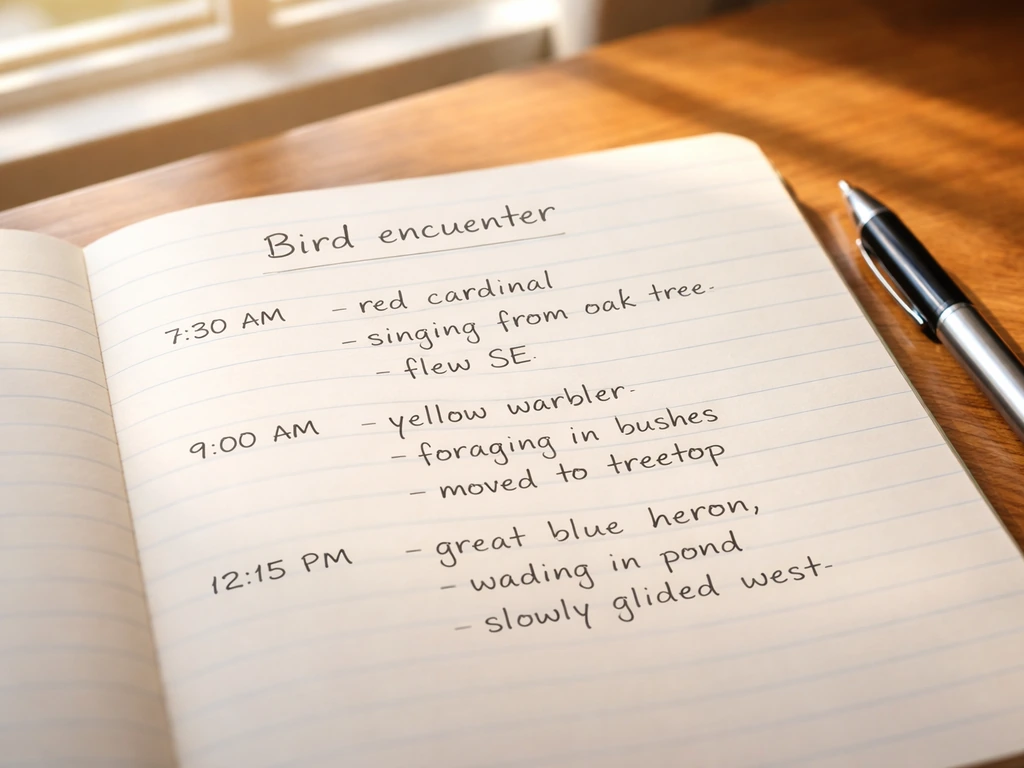 Bird encuenter
7:30 AM - red cardinal
- singing from oak tree.
- flew SE.
9:00 AM - yellow warbler.
- foraging in bushes
- moved to treetop
12:15 PM - great blue heron,
- wading in pond
- slowly glided west-